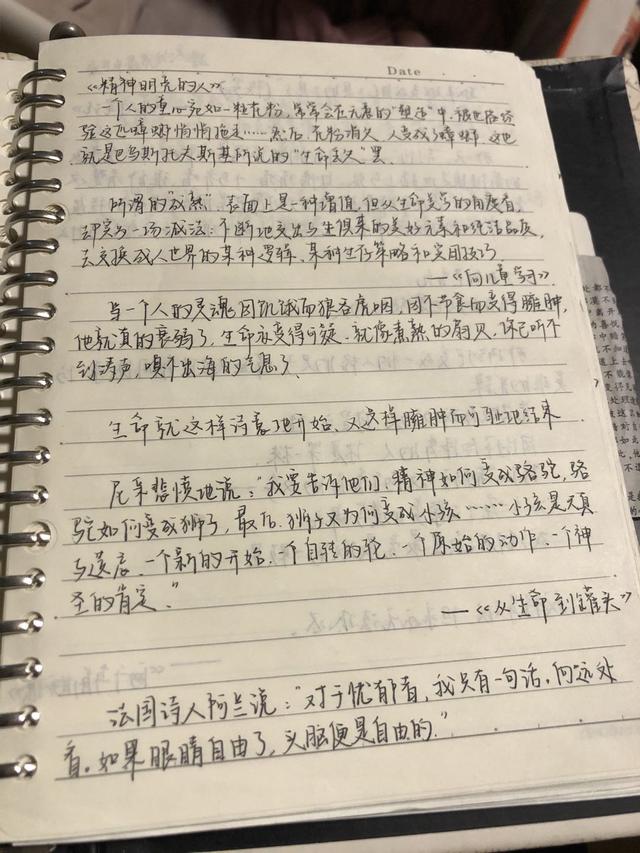 Date
《精神明亮的人》
一个人的童心宛如一粒花粉，常常会在无意的“塑造”中，被世俗经
验这匹蟑螂悄悄拖走……然后，花粉消失，人变成了蟑螂，这也
就是巴乌斯托夫斯基所说的“生命丢失”罢．
所谓的“成熟”，表面上是一种增值，但从生命美学的角度看，
却实为一场减法：不断地交出与生俱来的美好元素和纯洁品质，
去交换成人世界的某种逻辑、某种生存策略和实用技巧．
——《向儿童学习》．
当一个人的灵魂因饥饿而狼吞虎咽，因不节食而变得臃肿，
他就真的衰弱了，生命亦变得可疑．就像煮熟的扇贝，你已听不
到涛声，嗅不出海的气息了．
生命就这样诗意地开始、又这样臃肿而可耻地结束
尼采悲愤地说：“我要告诉他们，精神如何变成骆驼，骆
驼如何变成狮子，最后，狮子又为何变成小孩……小孩是天真
与遗忘，一个新的开始，一个自转的轮，一个原始的动作，一个神
圣的肯定．”
——《从生命到罐头》
法国诗人阿兰说：“对于忧郁者，我只有一句话，向远处
看。如果眼睛自由了，头脑便是自由的．”